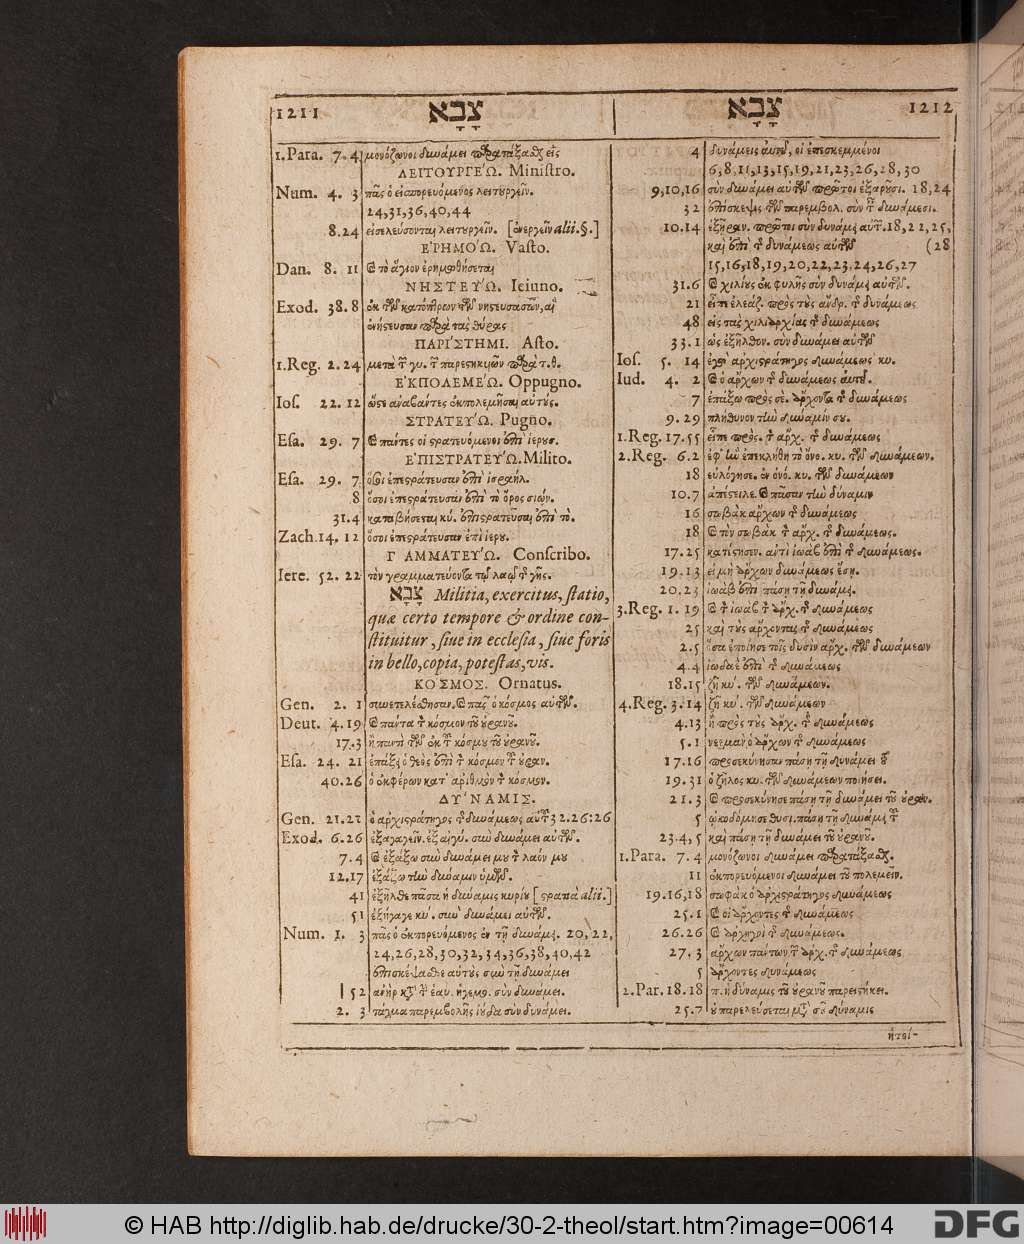 1211 צָבָא
צָבָא 1212
1.Para. 7. 4 μονόζωνοι δυνάμει παρατάξασθαι εἰς
ΛΕΙΤΟΥΡΓΕΏ. Miniſtro.
Num. 4. 3 πᾶς ὁ εἰσπορευόμενος λειτουργεῖν.
24,31,36,40,44
8.24 εἰσελεύσονται λειτουργεῖν. [ἐνεργεῖν alii.§.]
ἘΡΗΜΌΩ. Vaſto.
Dan. 8. 11 καὶ τὸ ἅγιον ἐρημωθήσεται
ΝΗΣΤΕΎΩ. Ieiuno.
Exod. 38. 8 ἐκ τῶν κατόπτρων τῶν νηστευσασῶν, αἳ
ἐνήστευσαν παρὰ τὰς θύρας
ΠΑΡΊΣΤΗΜΙ. Aſto.
1.Reg. 2.24 μετὰ τῶν γυ. τῶν παρεστηκυιῶν παρὰ τ.θ.
ἘΚΠΟΛΕΜΈΩ. Oppugno.
Ioſ. 22. 12 ὥστε ἀναβάντες ἐκπολεμῆσαι αὐτούς.
ΣΤΡΑΤΕΎΩ. Pugno.
Eſa. 29. 7 καὶ πάντες οἱ στρατευόμενοι ἐπὶ ἱερουσ.
ἘΠΙΣΤΡΑΤΕΎΩ. Milito.
Eſa. 29. 7 ὅσοι ἐπεστράτευσαν ἐπὶ ἰσραήλ.
8 ὅσοι ἐπεστράτευσαν ἐπὶ τὸ ὄρος σιών.
31.4 καταβήσεται κύ. ἐπιστρατεῦσαι ἐπὶ τὸ.
Zach.14. 12 ὅσοι ἐπεστράτευσαν ἐπὶ ἱερου.
Γ ΑΜΜΑΤΕΎΩ. Conſcribo.
Iere. 52. 22 τὸν γραμματεύοντα τῷ λαῷ τῆς γῆς.
צָבָא Militia, exercitus, ſtatio,
quæ certo tempore & ordine con-
ſtituitur, ſiue in eccleſia, ſiue foris
in bello, copia, poteſtas, vis.
ΚΌΣΜΟΣ. Ornatus.
Gen. 2. 1 συνετελέσθησαν. καὶ πᾶς ὁ κόσμος αὐτῶν.
Deut. 4.19 καὶ πάντα τὸν κόσμον τοῦ οὐρανοῦ.
17.3 ἢ παντὶ τῶν ἐκ τοῦ κόσμου τοῦ οὐρανοῦ.
Eſa. 24. 21 ἐπάξει ὁ θεὸς ἐπὶ τὸν κόσμον τοῦ οὐραν.
40.26 ὁ ἐκφέρων κατ' ἀριθμὸν τὸν κόσμον.
ΔΎΝΑΜΙΣ.
Gen. 21.22 ὁ ἀρχιστράτηγος τῆς δυνάμεως αὐτοῦ 32.26:26
Exod. 6.26 ἐξαγαγεῖν. ἐξ αἰγύ. σὺν δυνάμει αὐτῶν.
7.4 καὶ ἐξάξω σὺν δυνάμει μου τὸν λαόν μου
12.17 ἐξάξω τὴν δύναμιν ὑμῶν.
41 ἐξῆλθε πᾶσα ἡ δύναμις κυρίου [στρατιὰ alii.]
51 ἐξήγαγε κύ. σὺν δυνάμει αὐτῶν.
Num. 1. 3 πᾶς ὁ ἐκπορευόμενος ἐν τῇ δυνάμει. 20, 22,
24,26,28,30,32,34,36,38,40,42
ἐπισκέψασθε αὐτοὺς σὺν τῇ δυνάμει
52 ἀνὴρ κατὰ τὴν ἑαυ. ἡγεμο. σὺν δυνάμει.
2. 3 τάγμα παρεμβολῆς ἰούδα σὺν δυνάμει.
4 δυνάμεις αὐτοῦ, οἱ ἐπεσκεμμένοι
6,8,11,13,15,19,21,23,26,28,30
9,10,16 σὺν δυνάμει αὐτῶν πρῶτοι ἐξαροῦσι. 18,24
32 ἐπίσκεψις τῶν παρεμβολ. σὺν ταῖς δυνάμεσι.
10.14 ἐξῆραν. πρῶτοι σὺν δυνάμει αὐτῶν. 18,22,25,
καὶ ἐπὶ τῆς δυνάμεως αὐτῶν (28
15,16,18,19,20,22,23,24,26,27
31.6 καὶ χιλίους ἐκ φυλῆς σὺν δυνάμει αὐτῶν.
21 εἶπε ἐλεάζ. πρὸς τοὺς ἄνδρ. τῆς δυνάμεως
48 εἰς τὰς χιλιαρχίας τῆς δυνάμεως
33.1 ὡς ἐξῆλθον. σὺν δυνάμει αὐτῶν
Ioſ. 5. 14 ἐγὼ ἀρχιστράτηγος δυνάμεως κυ.
Iud. 4. 2 καὶ ὁ ἄρχων τῆς δυνάμεως αὐτοῦ.
7 ἐπάξω πρὸς σὲ. ἄρχοντα τῆς δυνάμεως
9.29 πλήθυνον τὴν δύναμίν σου.
1.Reg.17.55 εἶπε πρὸς. τὸν ἄρχ. τῆς δυνάμεως
2.Reg. 6.2 ἐφ' ἣν ἐπεκλήθη τὸ ὄνο. κυ. τῶν δυνάμεων.
18 εὐλόγησε. ἐν ὀνό. κυ. τῶν δυνάμεων
10.7 ἀπέστειλε. καὶ πᾶσαν τὴν δύναμιν
16 σωβὰκ ἄρχων τῆς δυνάμεως
18 καὶ τὸν σωβὰκ τὸν ἄρχ. τῆς δυνάμεως.
17.25 κατέστησεν. ἀντὶ ἰωὰβ ἐπὶ τῆς δυνάμεως.
19.13 εἰ μὴ ἄρχων δυνάμεως ἔσῃ.
20.23 ἰωὰβ ἐπὶ πάσῃ τῇ δυνάμει.
3.Reg. 1. 19 καὶ τὸν ἰωὰβ τὸν ἄρχ. τῆς δυνάμεως
25 καὶ τοὺς ἄρχοντας τῆς δυνάμεως
2.5 ὅσα ἐποίησε τοῖς δυσὶν ἄρχ. τῶν δυνάμεων
4.4 ἰωδαὲ ἐπὶ τῆς δυνάμεως
18.15 ζῇ κύ. τῶν δυνάμεων.
4.Reg. 3.14 ζῇ κύ. τῶν δυνάμεων
4.13 ἢ πρὸς τοὺς ἄρχ. τῆς δυνάμεως
5.1 νεεμὰν ὁ ἄρχων τῆς δυνάμεως
17.16 προσεκύνησαν πάσῃ τῇ δυνάμει τοῦ
19.31 ὁ ζῆλος κυ. τῶν δυνάμεων ποιήσει.
21.3 καὶ προσεκύνησε πάσῃ τῇ δυνάμει τοῦ οὐραν.
5 ᾠκοδόμησε θυσι. πάσῃ τῇ δυνάμει τοῦ
23.4,5 καὶ πάσῃ τῇ δυνάμει τοῦ οὐρανοῦ.
1.Para. 7.4 μονόζωνοι δυνάμει παρατάξασθαι.
11 ἐκπορευόμενοι δυνάμει τοῦ πολεμεῖν.
19.16,18 σωφὰκ ὁ ἀρχιστράτηγος δυνάμεως
25.1 καὶ οἱ ἄρχοντες τῆς δυνάμεως
26.26 καὶ ἀρχηγοὶ τῆς δυνάμεως.
27.3 ἄρχων πάντων τῶν ἀρχ. τῆς δυνάμεως
5 ἄρχοντες δυνάμεως
2.Par.18.18 π. ἡ δύναμις τοῦ οὐρανοῦ παρειστήκει.
25.7 οὐ παρελεύσεται μετὰ σοῦ δύναμις
ἤτοί-
© HAB http://diglib.hab.de/drucke/30-2-theol/start.htm?image=00614
DFG